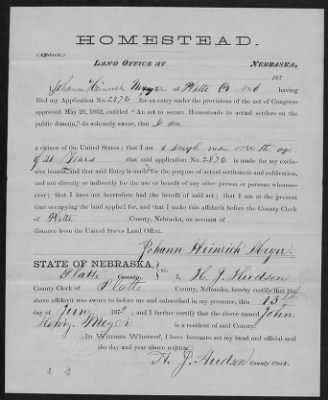 HOMESTEAD.
(Affidavit.)
LAND OFFICE AT NEBRASKA,
187
Johann Heinrich Meyer of Platte Co Neb having
filed my Application No. 2876 for an entry under the provisions of the act of Congress
approved May 20, 1862, entitled "An act to secure Homesteads to actual settlers on the
public domain," do solemnly swear, that I am
a citizen of the United States; that I am a single man over the age
of 21 Years that said application No. 2876 is made for my exclu-
sive benefit, and that said Entry is made for the purpose of actual settlement and cultivation, and
not directly or indirectly for the use or benefit of any other person or persons whomso-
ever; that I have not heretofore had the benefit of said act; that I am at the present
time occupying the land applied for, and that I make this affidavit before the County Clerk
of Platte County, Nebraska, on account of
distance from the United States Land Office.
Johann Heinrich Meyer
STATE OF NEBRASKA, } ss.
Platte County. I, H. J. Hudson
County Clerk of Platte County, Nebraska, hereby certify that the
above affidavit was sworn to before me and subscribed in my presence, this 13th
day of June 187 ; and I further certify that the above named John
Henry Meyer is a resident of said County.
In Witness Whereof, I have hereunto set my hand and official seal
the day and year above written.
H. J. Hudson
County Clerk.